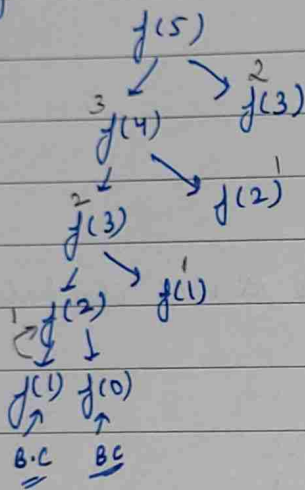 f(5)
3 f(4) 2 f(3)
2 f(3) f(2) 1
1 f(2) f(1) 1
f(1) f(0)
B.C BC